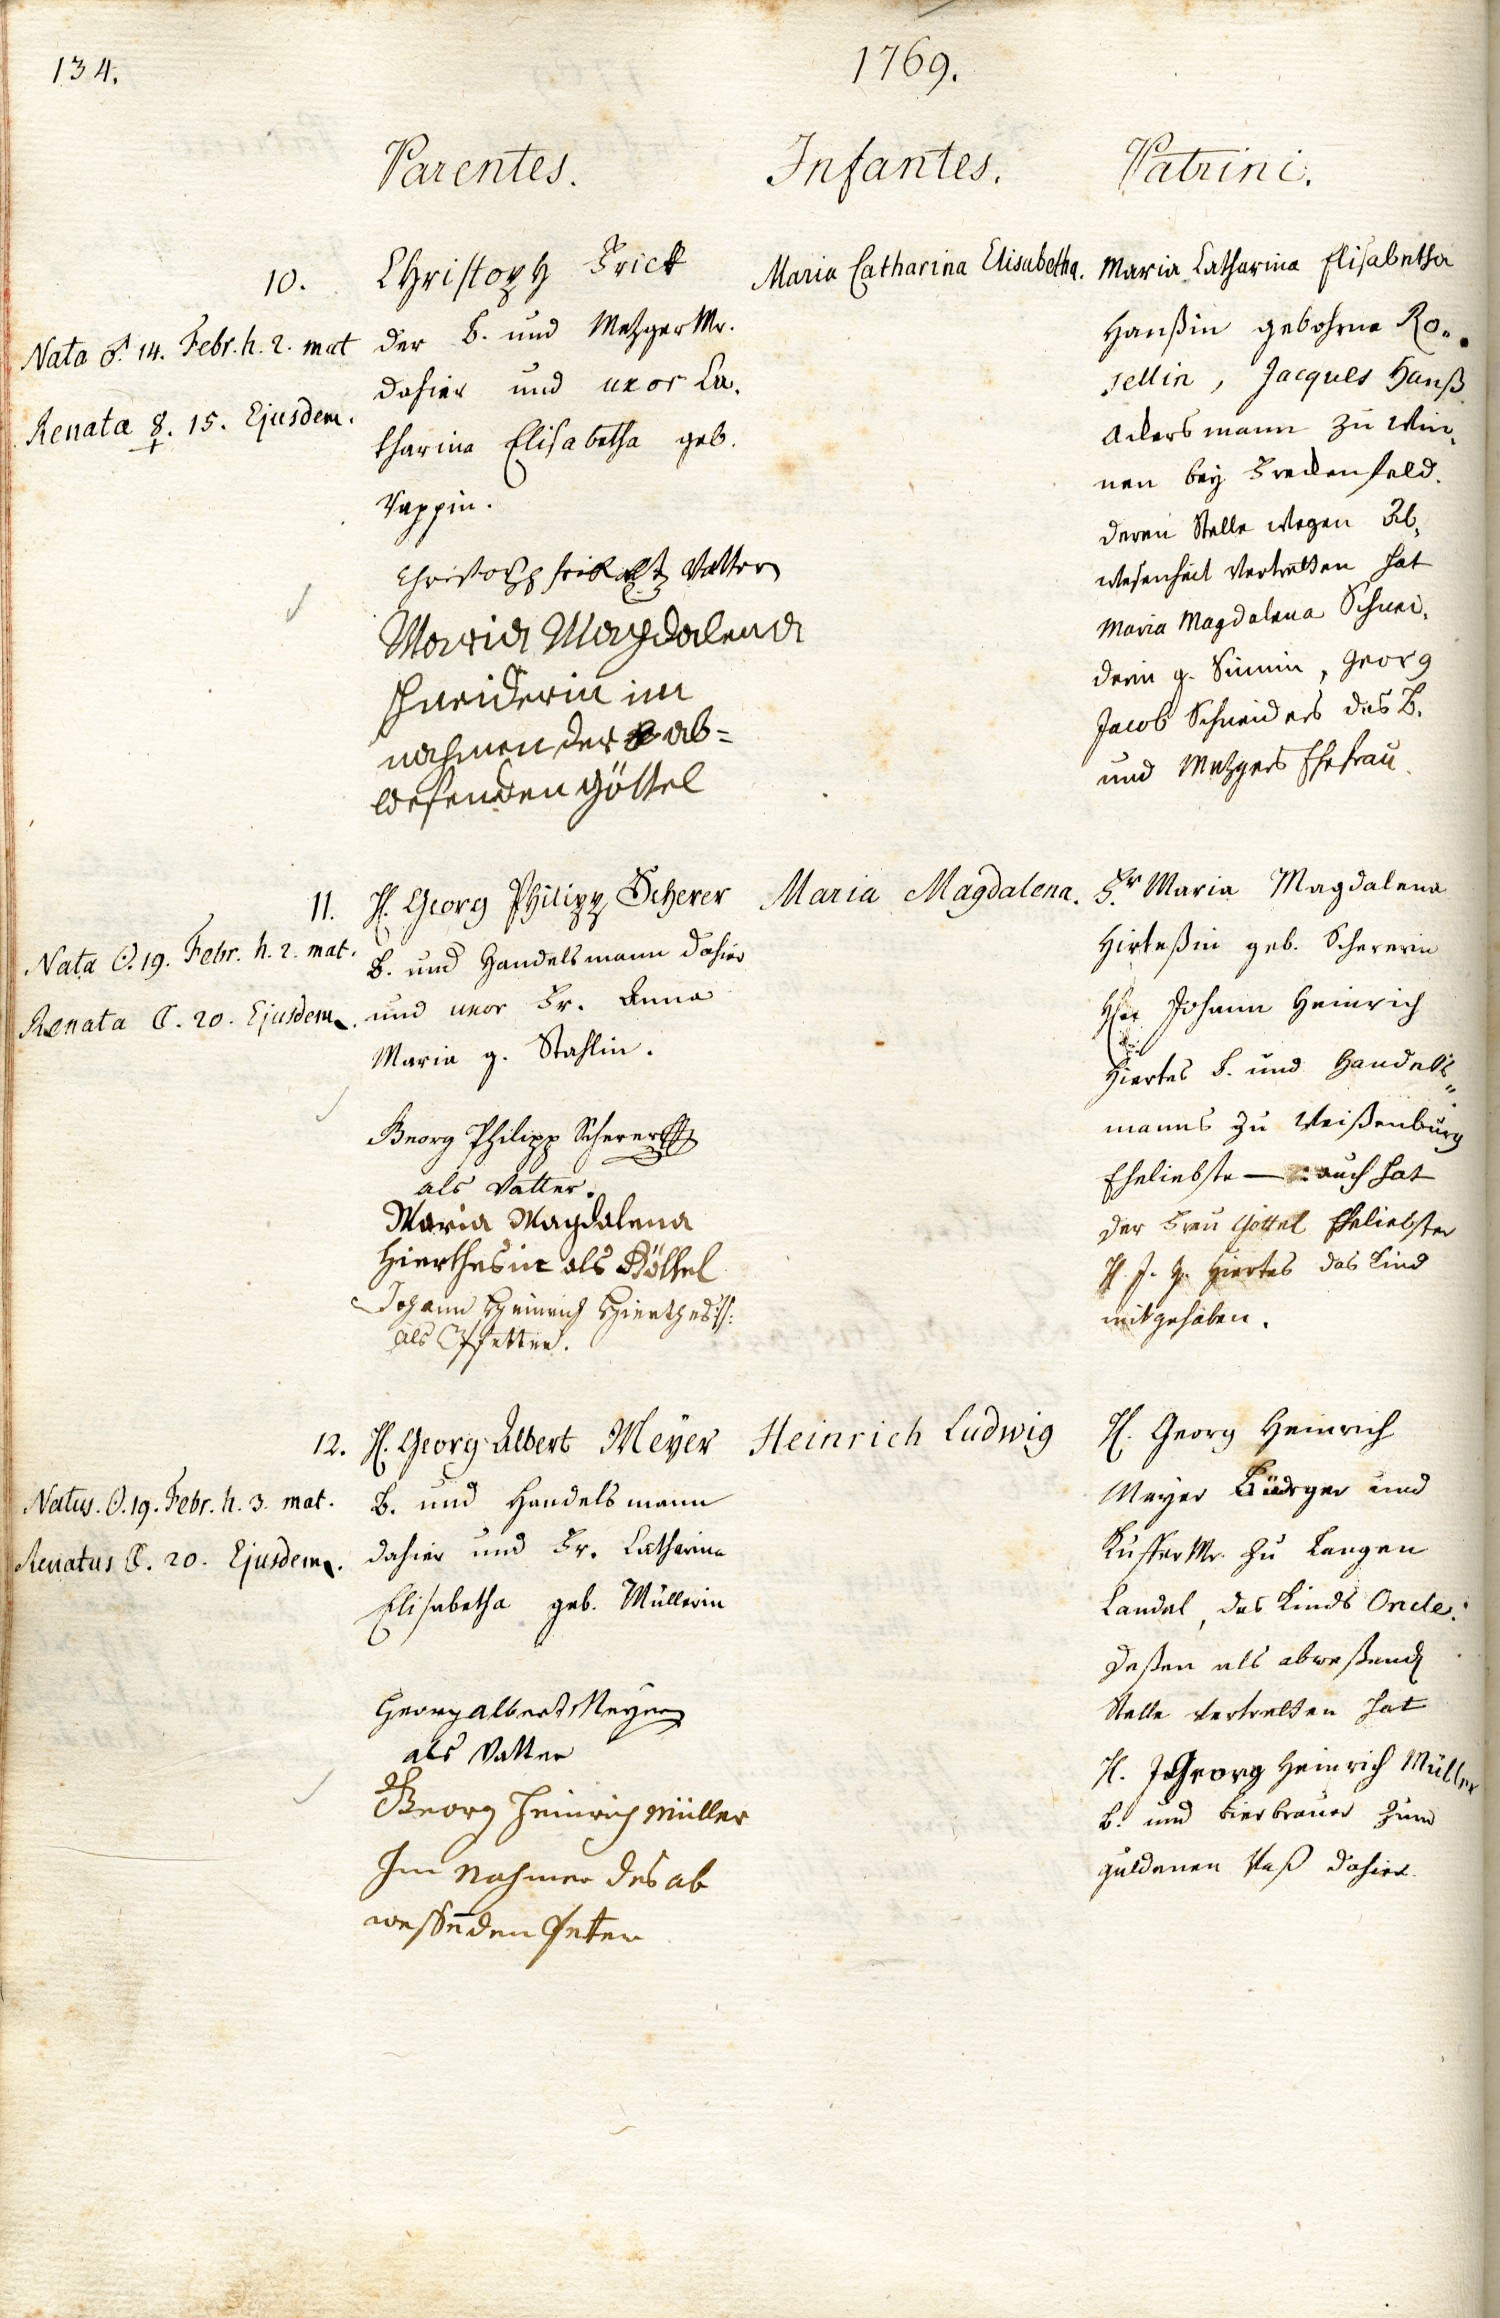 134.
1769.
Parentes.
Infantes.
Patrini.
10.
Nata ♂. 14. Febr. h. 2. mat
Renata ☿. 15. Ejusdem.
Christoph Frick
der B. und Metzger Mr.
dahier und uxor Ca.
tharina Elisabetha geb.
Pappin.
Christoph frick als Vatter
Maria Magdalena
schneiderin im
nahmen der ab=
wesenden göttel
Maria Catharina Elisabetha.
Maria Catharina Elisabetha
Hanßin gebohrne Ro„
sellin, Jacques Hanß
Ackersmann zu Win„
nen bey Freckenfeld.
deren Stelle wegen Ab„
wesenheit vertretten hat
Maria Magdalena Schnei„
derin g. Simmin, Georg
Jacob Schneiders des B.
und Metzgers Ehefrau.
11.
Nata ☉. 19. Febr. h. 2. mat.
Renata ☾. 20. Ejusdem.
H. Georg Philipp Scherer
B. und Handelsmann dahier
und uxor Fr. Anna
Maria g. Stahlin.
Georg Philipp Scherer
als Vatter.
Maria Magdalena
Hierthesin als Göttel
Johann Heinrich Hierthes
als Pfetter.
Maria Magdalena.
Fr. Maria Magdalena
Hirteßin geb. Schererin
Johann Heinrich
Hiertes B. und Handels„
manns zu Weißenburg
Eheliebste — auch hat
der Frau Göttel Eheliebster
H. J. H. Hiertes das Kind
mitgehaben.
12.
Natus. ☉. 19. Febr. h. 3. mat.
Renatus ☾. 20. Ejusdem.
H. Georg Albert Meÿer
B. und Handelsmann
dahier und Fr. Catharina
Elisabetha geb. Müllerin
Georg albert Meyer
als Vatter
Georg Heinrich Müller
Im Nahmen des ab
wessenden Peter
Heinrich Ludwig
H. Georg Heinrich
Meyer Bürger und
Kuffer Mr. zu Langen
Candel, des Kinds Oncle.
deßen als abweßend
Stelle vertretten hat
H. Georg Heinrich Müller
B. und Bierbrauer zum
guldenen Faß dahier.